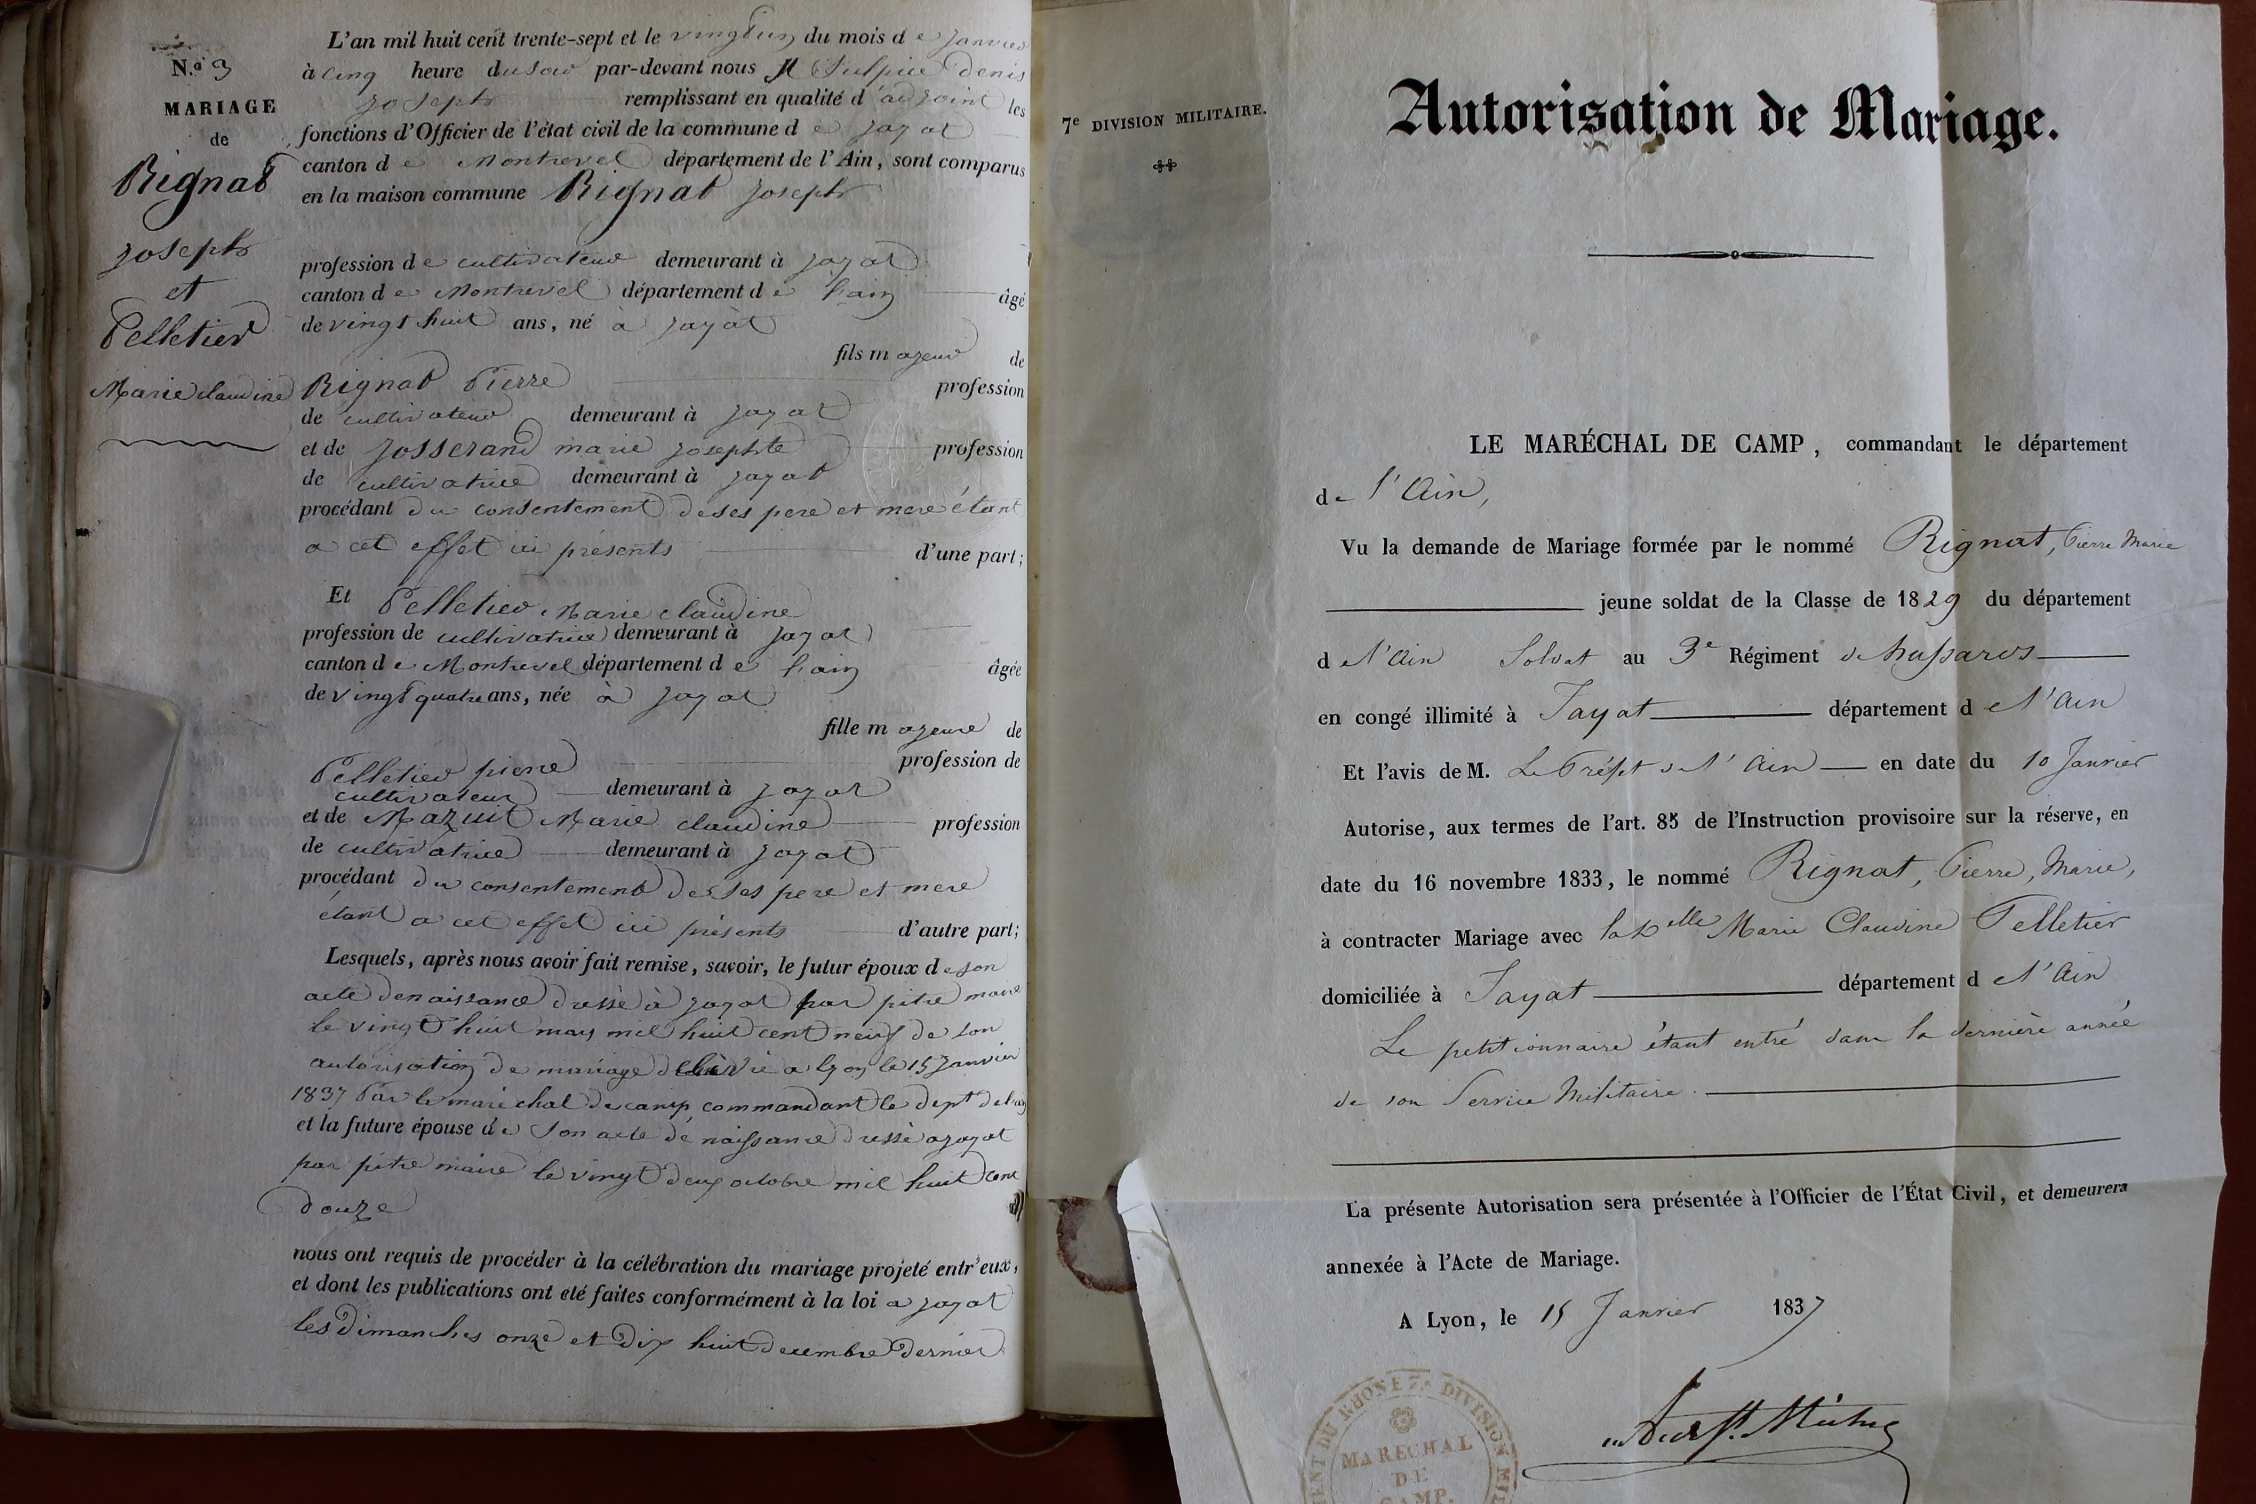 N.º 3
MARIAGE
de
Rignat
Joseph
et
Pelletier
Marie claudine
L'an mil huit cent trente-sept et le vingt un du mois de Janvier
à cinq heure du soir par-devant nous Sulpice Denis
Joseph remplissant en qualité d'adjoint les
fonctions d'Officier de l'état civil de la commune de jayat
canton de Montrevel département de l'Ain, sont comparus
en la maison commune Rignat Joseph
profession de cultivateur demeurant à jayat
canton de Montrevel département de l'ain âgé
de vingt huit ans, né à jayat
fils majeur de
Rignat Pierre profession
de cultivateur demeurant à jayat
et de Josserand marie josephte profession
de cultivatrice demeurant à jayat
procédant du consentement de ses pere et mere étant
a cet effet ici présents d'une part;
Et Pelletier Marie claudine
profession de cultivatrice demeurant à jayat
canton de Montrevel département de l'ain âgée
de vingt quatre ans, née à jayat
fille majeure de
Pelletier pierre profession de
cultivateur demeurant à jayat
et de Mazuit Marie claudine profession
de cultivatrice demeurant à jayat
procédant du consentement de ses pere et mere
étant a cet effet ici présents d'autre part;
Lesquels, après nous avoir fait remise, savoir, le futur époux de son
acte de naissance dressé à jayat par pitre maire
le vingt huit mars mil huit cent neuf de son
autorisation de mariage délivré a lyon le 15 Janvier
1837 Par le maréchal de camp commandant le dept de l'ain
et la future épouse de son acte de naissance dressé a jayat
par pitre maire le vingt deux octobre mil huit cent
douze
nous ont requis de procéder à la célébration du mariage projeté entr'eux,
et dont les publications ont eté faites conformément à la loi a jayat
les dimanches onze et dix huit decembre dernier
7e DIVISION MILITAIRE.
Autorisation de Mariage.
LE MARÉCHAL DE CAMP, commandant le département
de l'Ain,
Vu la demande de Mariage formée par le nommé Rignat, Pierre Marie
jeune soldat de la Classe de 1829 du département
de l'Ain Soldat au 3e Régiment de hussards
en congé illimité à Jayat département de l'Ain
Et l'avis de M. Le Préfet de l'Ain en date du 10 Janvier
Autorise, aux termes de l'art. 85 de l'Instruction provisoire sur la réserve, en
date du 16 novembre 1833, le nommé Rignat, Pierre, Marie,
à contracter Mariage avec la Delle Marie Claudine Pelletier
domiciliée à Jayat département de l'Ain
Le petitionnaire étant entré dans la dernière année
de son Service Militaire.
La présente Autorisation sera présentée à l'Officier de l'État Civil, et demeurera
annexée à l'Acte de Mariage.
A Lyon, le 15 Janvier 1837
DU RHONE 7e DIVISION
MARECHAL
DE
CAMP.